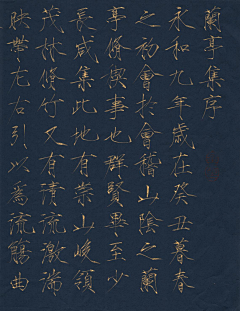 蘭亭集序
永和九年歲在癸丑暮春
之初會於會稽山陰之蘭
亭脩禊事也群賢畢至少
長咸集此地有崇山峻領
茂林脩竹又有清流激湍
映帶左右引以為流觴曲